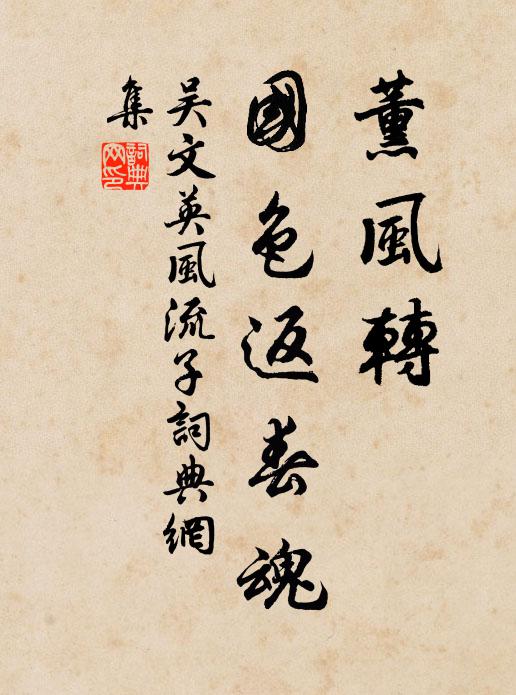 薰風轉
國色返春魂
吳文英風流子詞典網
集
詞典網印